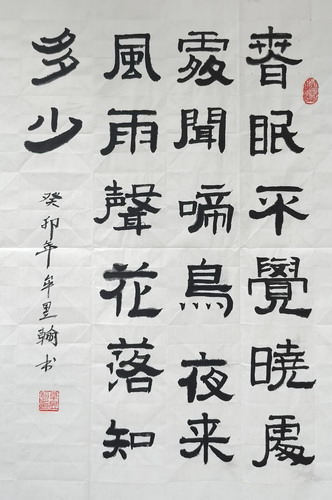 春眠不覺曉處
處聞啼鳥夜来
風雨聲花落知
多少
癸卯年牟里翰书